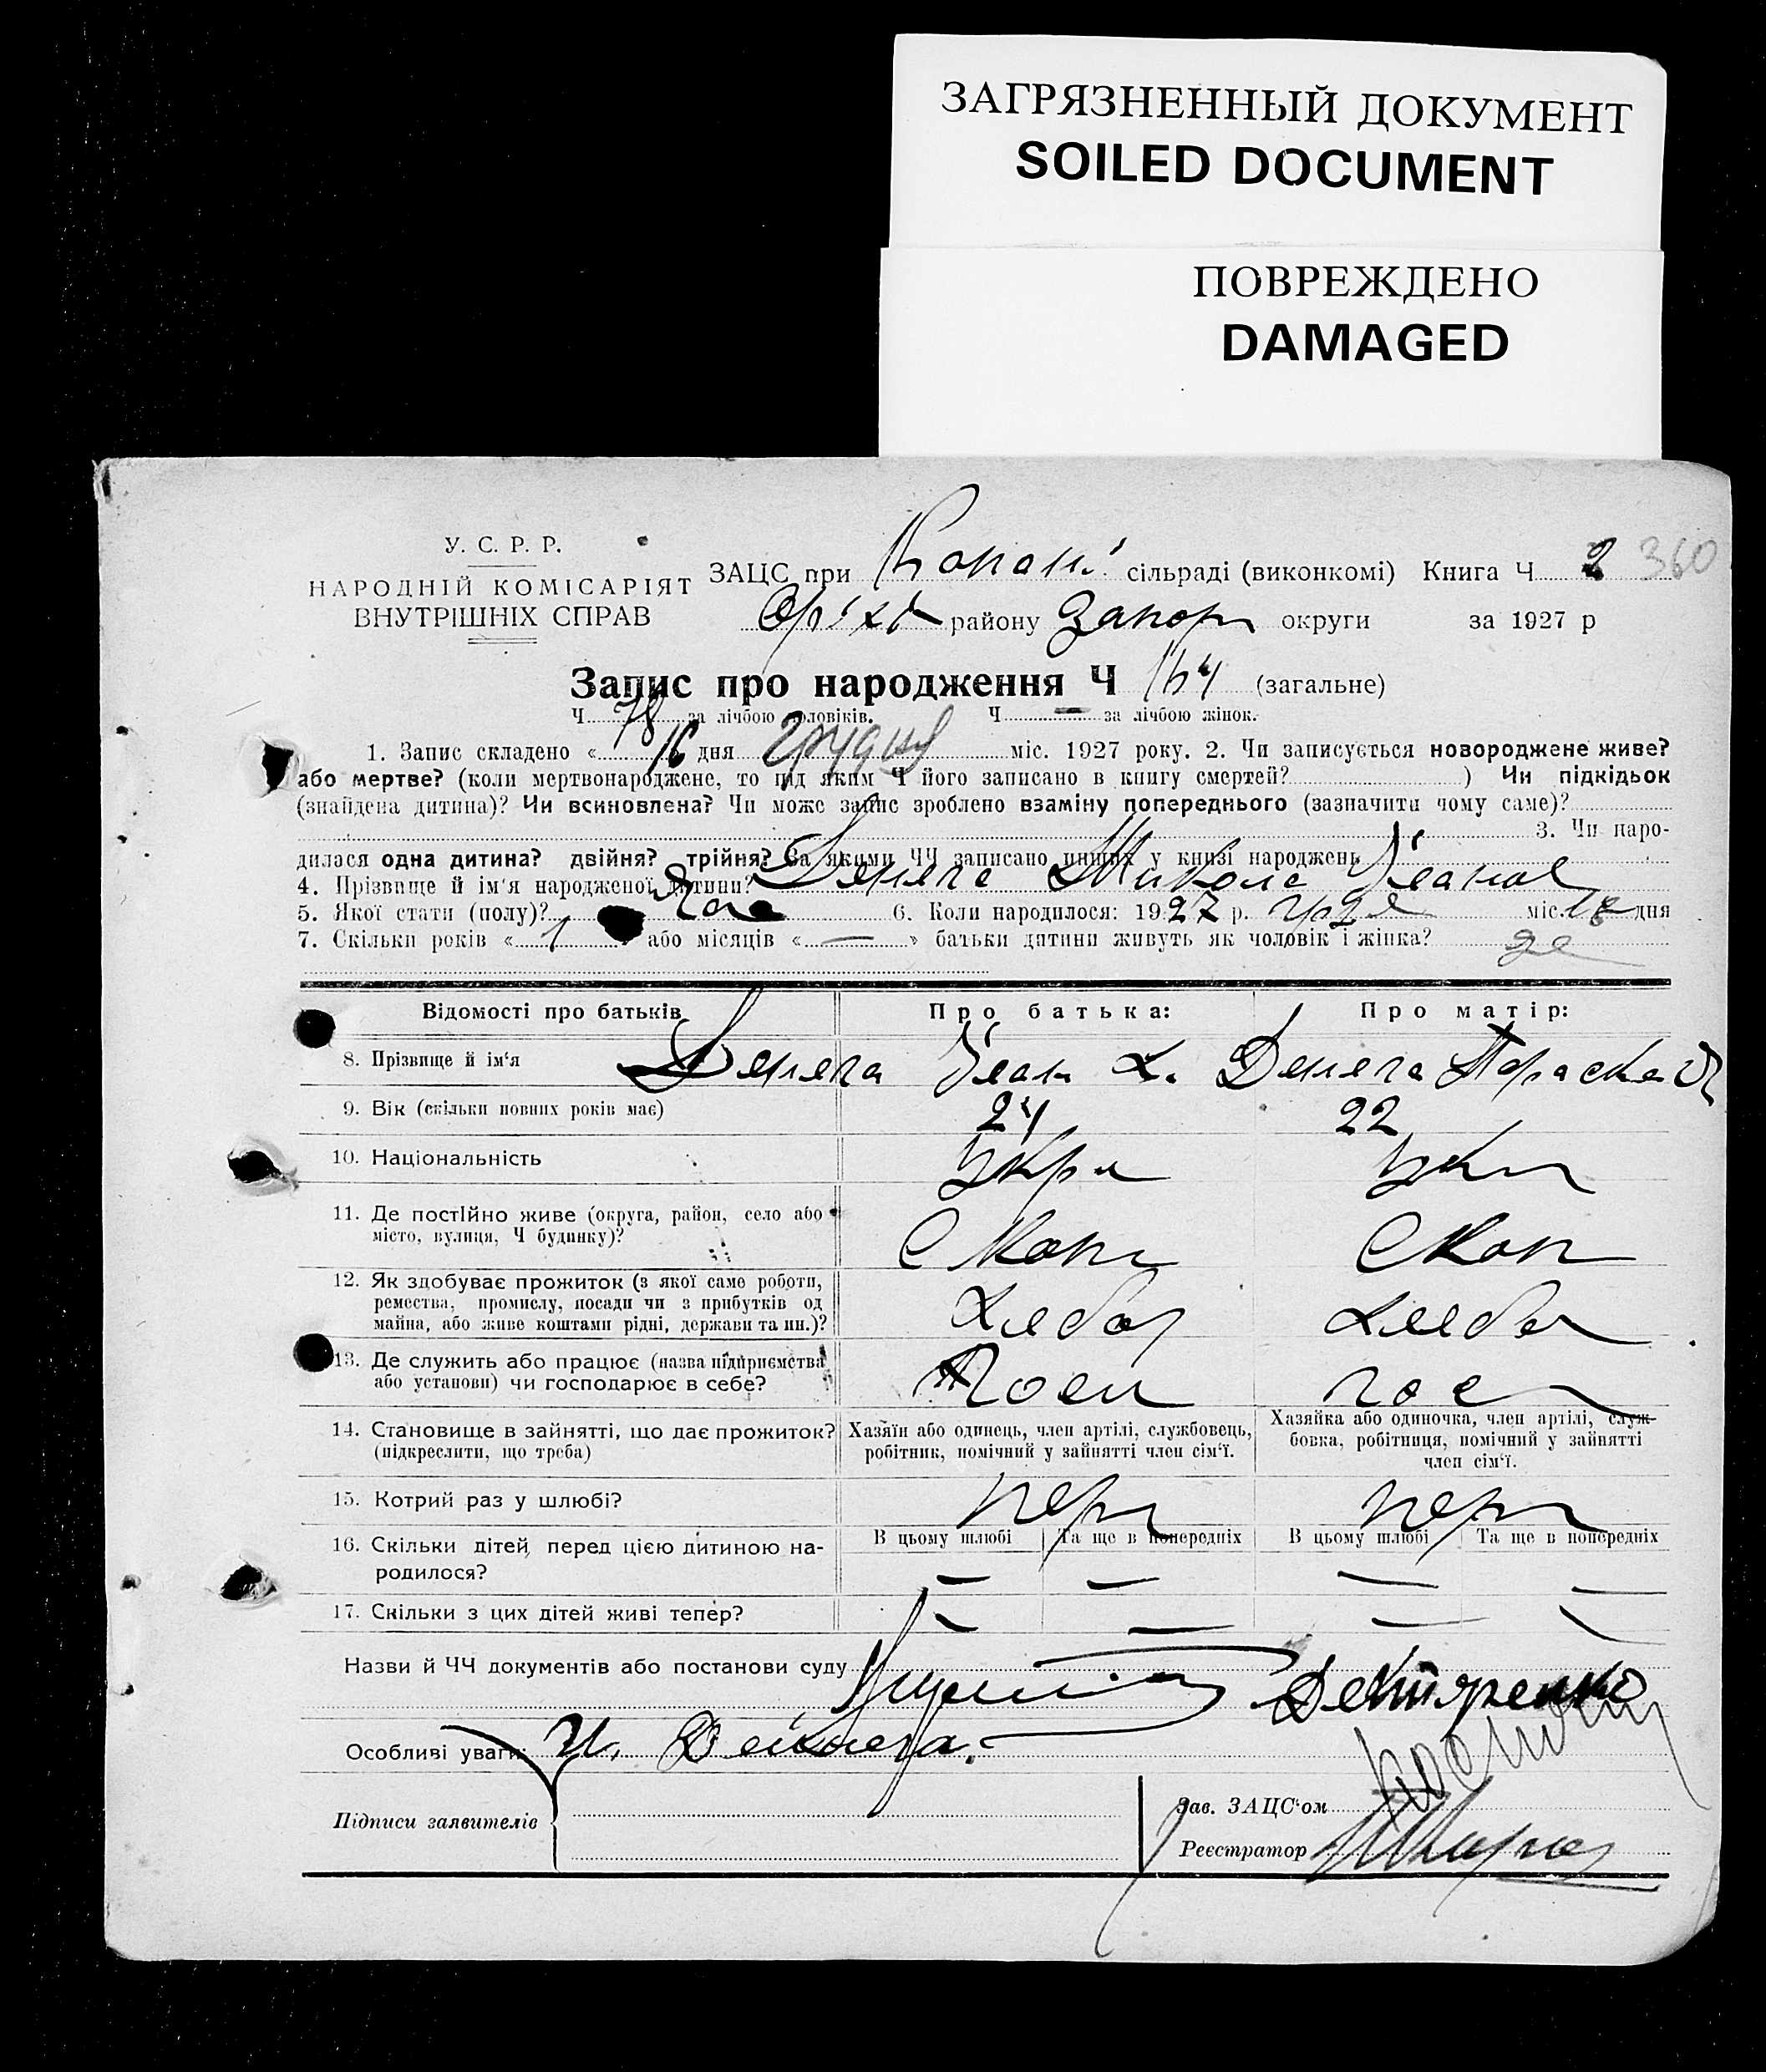 ЗАГРЯЗНЕННЫЙ ДОКУМЕНТ
SOILED DOCUMENT
ПОВРЕЖДЕНО
DAMAGED
У. С. Р. Р.
НАРОДНІЙ КОМІСАРІЯТ
ВНУТРІШНІХ СПРАВ
ЗАЦС при Копані сільраді (виконкомі) Книга Ч 2 360
Оріхі району Запор округи за 1927 р
Запис про народження Ч 164 (загальне)
Ч 78 за лічбою чоловіків. Ч — за лічбою жінок.
1. Запис складено « 16 дня грудня міс. 1927 року. 2. Чи записується новороджене живе?
або мертве? (коли мертвонароджене, то під яким Ч його записано в книгу смертей? ) Чи підкідьок
(знайдена дитина)? Чи всиновлена? Чи може запис зроблено взаміну попереднього (зазначити чому саме)?
3. Чи наро-
дилася одна дитина? двійня? трійня? За якими ЧЧ записано инших у книзі народжень
4. Прізвище й ім'я народженої дитини? Микола Іванов
5. Якої стати (полу)? 6. Коли народилося: 1927 р. міс. дня
7. Скільки років « 1 » або місяців « — » батьки дитини живуть як чоловік і жінка?
Відомості про батьків Про батька: Про матір:
8. Прізвище й ім'я Іван Параска
9. Вік (скільки повних років має) 24 22
10. Національність Укра Укр
11. Де постійно живе (округа, район, село або
місто, вулиця, Ч будинку)? С Копа С Коп
12. Як здобуває прожиток (з якої саме роботи,
ремества, промислу, посади чи з прибутків од
майна, або живе коштами рідні, держави та ин.)? Хлебор Хлеб
13. Де служить або працює (назва підприємства
або установи) чи господарює в себе?
14. Становище в зайнятті, що дає прожиток?
(підкреслити, що треба)
Хазяїн або одинець, член артілі, службовець,
робітник, помічний у зайнятті член сім'ї.
Хазяйка або одиночка, член артілі, служ-
бовка, робітниця, помічний у зайнятті
член сім'ї.
15. Котрий раз у шлюбі? пер пер
16. Скільки дітей перед цією дитиною на-
родилося?
В цьому шлюбі Та ще в попередніх В цьому шлюбі Та ще в попередніх
— — — —
17. Скільки з цих дітей живі тепер? — — — —
Назви й ЧЧ документів або постанови суду
Особливі уваги:
Підписи заявителів
Зав. ЗАЦС'ом
Реєстратор